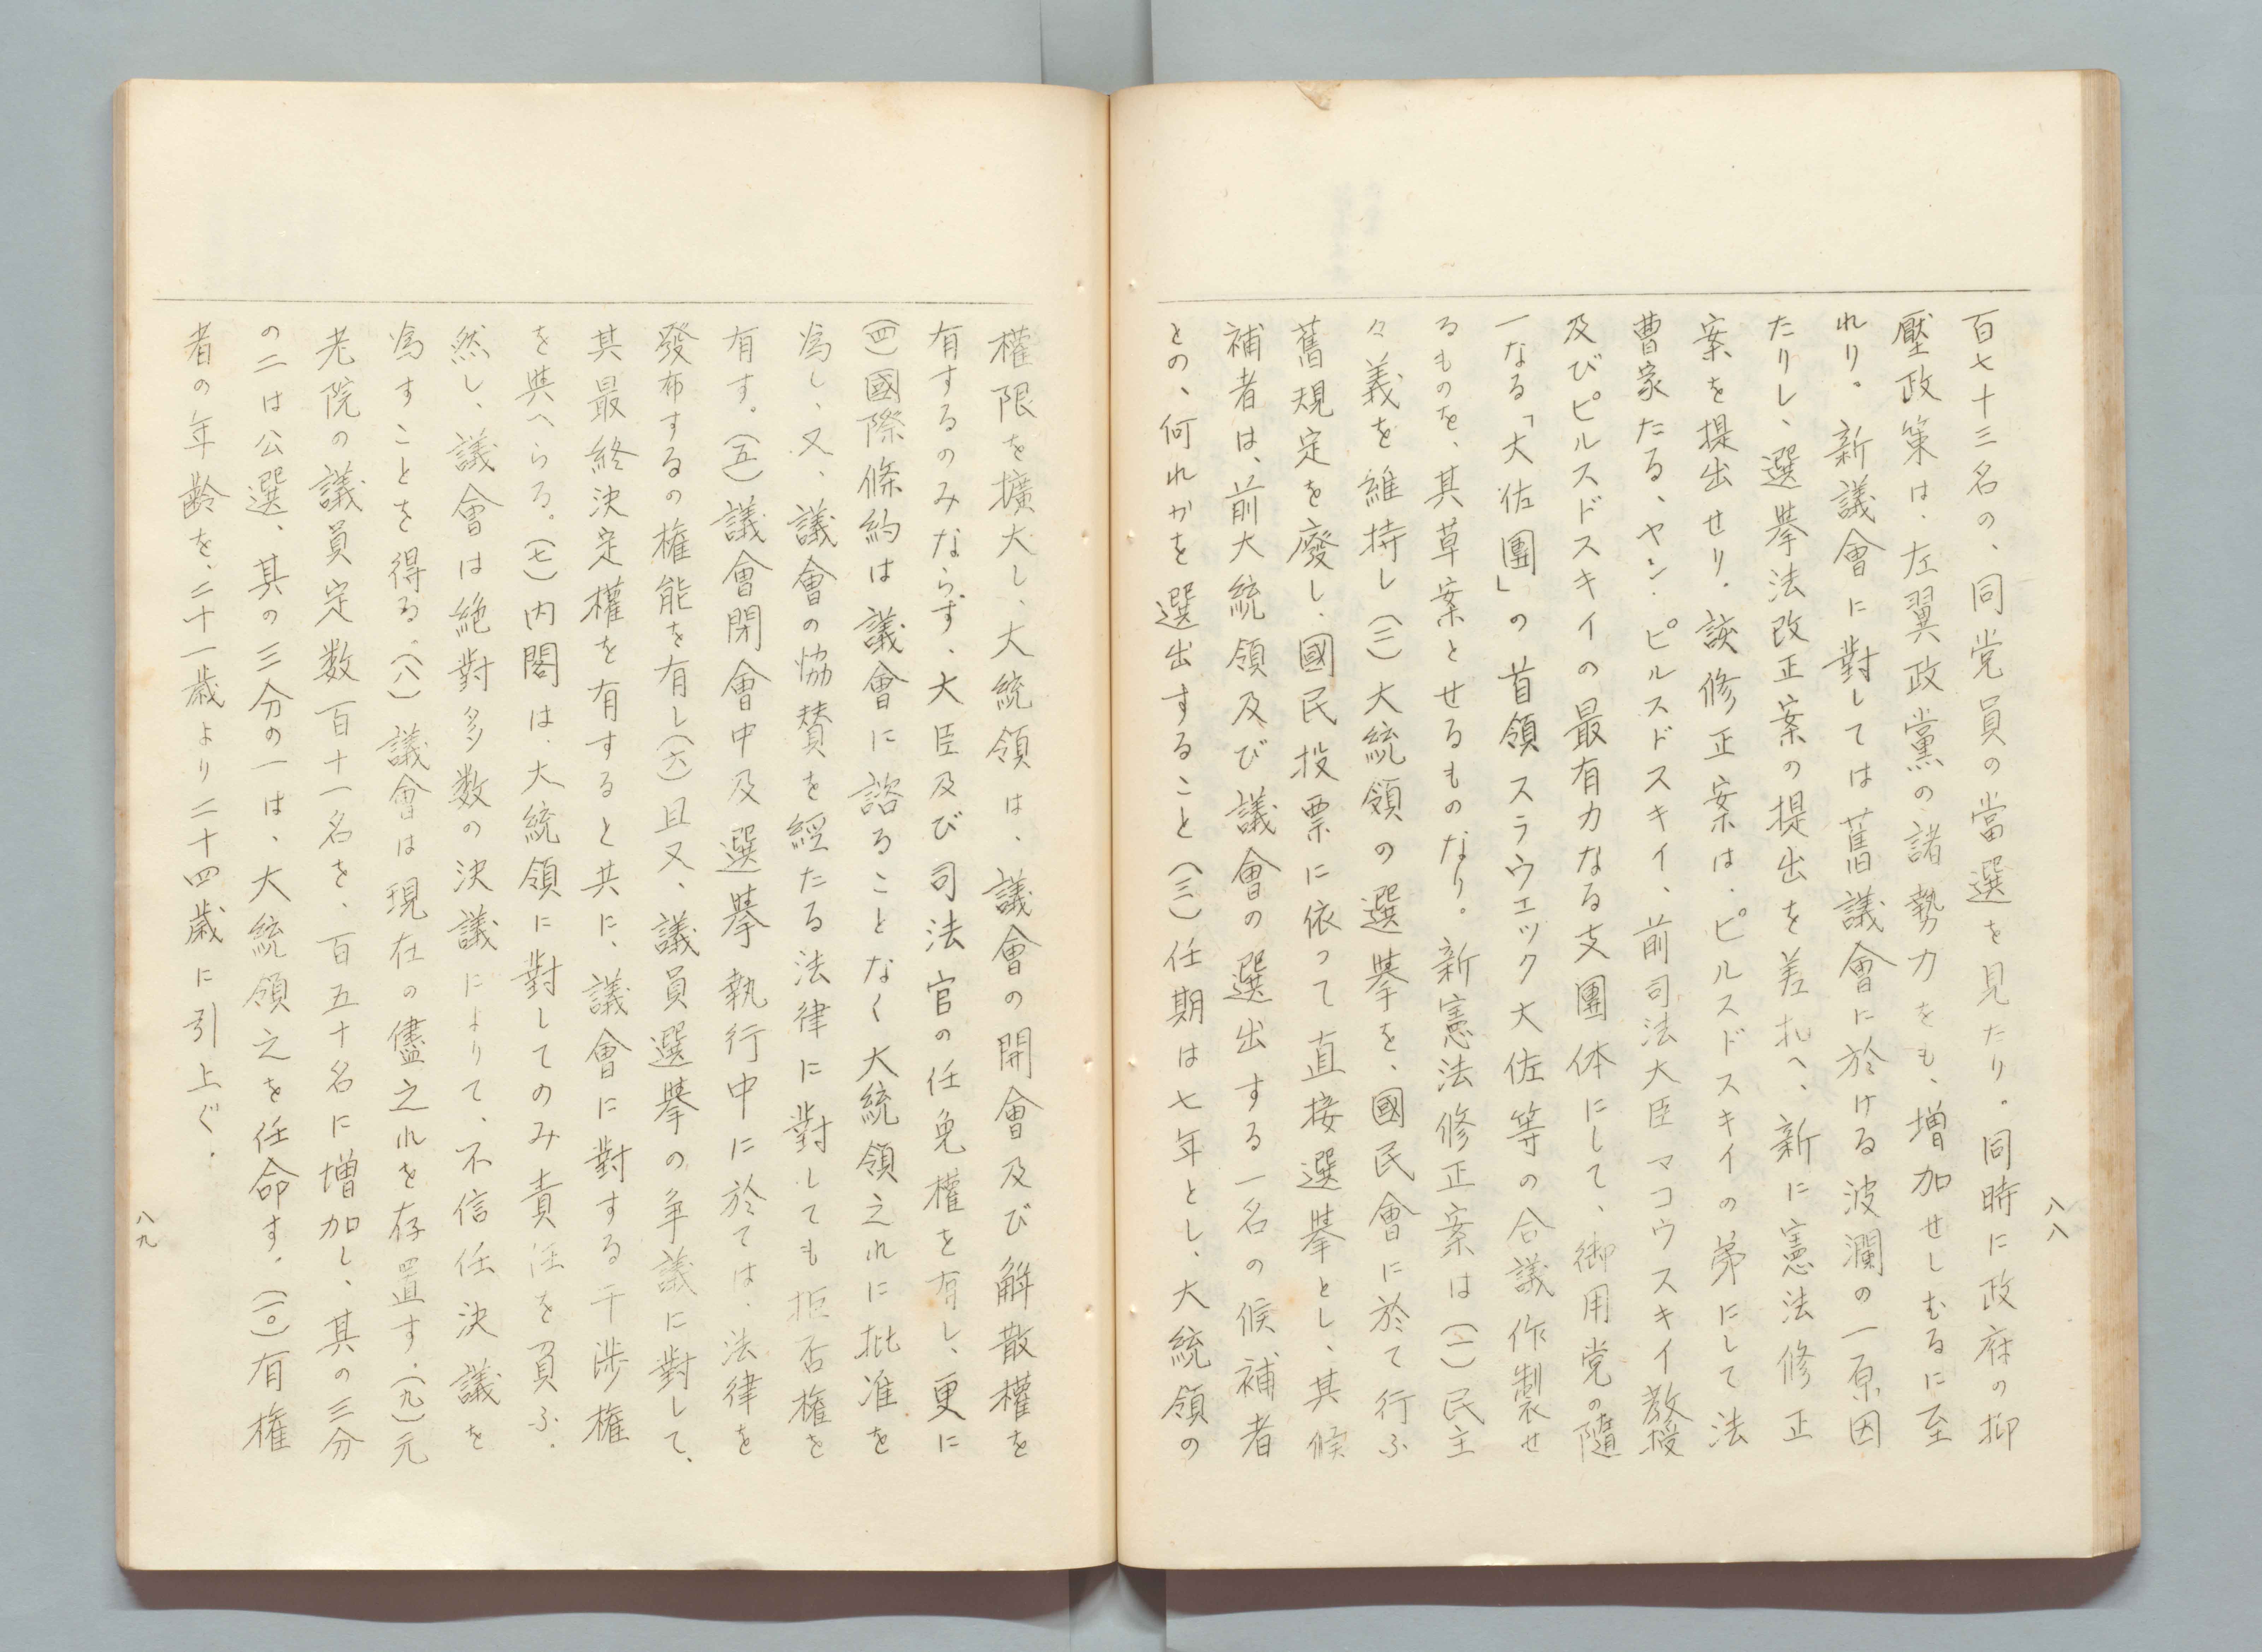 百七十三名の、同党員の當選を見たり。同時に政府の抑
壓政策は、左翼政黨の諸勢力をも、増加せしむるに至
れり。新議會に對しては舊議會に於ける波瀾の一原因
たりし、選擧法改正案の提出を差扣へ、新に憲法修正
案を提出せり。該修正案は、ピルスドスキイの弟にして法
曹家たる、ヤン・ピルスドスキイ、前司法大臣マコウスキイ教授
及びピルスドスキイの最有力なる支團体にして、御用党の隨
一なる「大佐團」の首領スラウエック大佐等の合議作製せ
るものを、其草案とせるものなり。新憲法修正案は（一）民主
々義を維持し（二）大統領の選擧を、國民會に於て行ふ
舊規定を廢し、國民投票に依って直接選擧とし、其候
補者は、前大統領及び議會の選出する一名の候補者
との、何れかを選出すること（三）任期は七年とし、大統領の
八八
權限を擴大し、大統領は、議會の開會及び解散權を
有するのみならず、大臣及び司法官の任免權を有し、更に
（四）國際條約は議會に諮ることなく大統領之れに批准を
為し、又、議會の協賛を經たる法律に對しても拒否権を
有す。（五）議會閉會中及選擧執行中に於ては、法律を
發布するの権能を有し（六）且又、議員選擧の争議に對して、
其最終決定權を有すると共に、議會に對する干渉権
を與へらる。（七）内閣は、大統領に對してのみ責任を負ふ。
然し、議會は絶對多数の決議によりて、不信任決議を
為すことを得る。（八）議會は現在の儘之れを存置す。（九）元
老院の議員定数百十一名を、百五十名に増加し、其の三分
の二は公選、其の三分の一は、大統領之を任命す。（一〇）有権
者の年齢を、二十一歳より二十四歳に引上ぐ。
八九